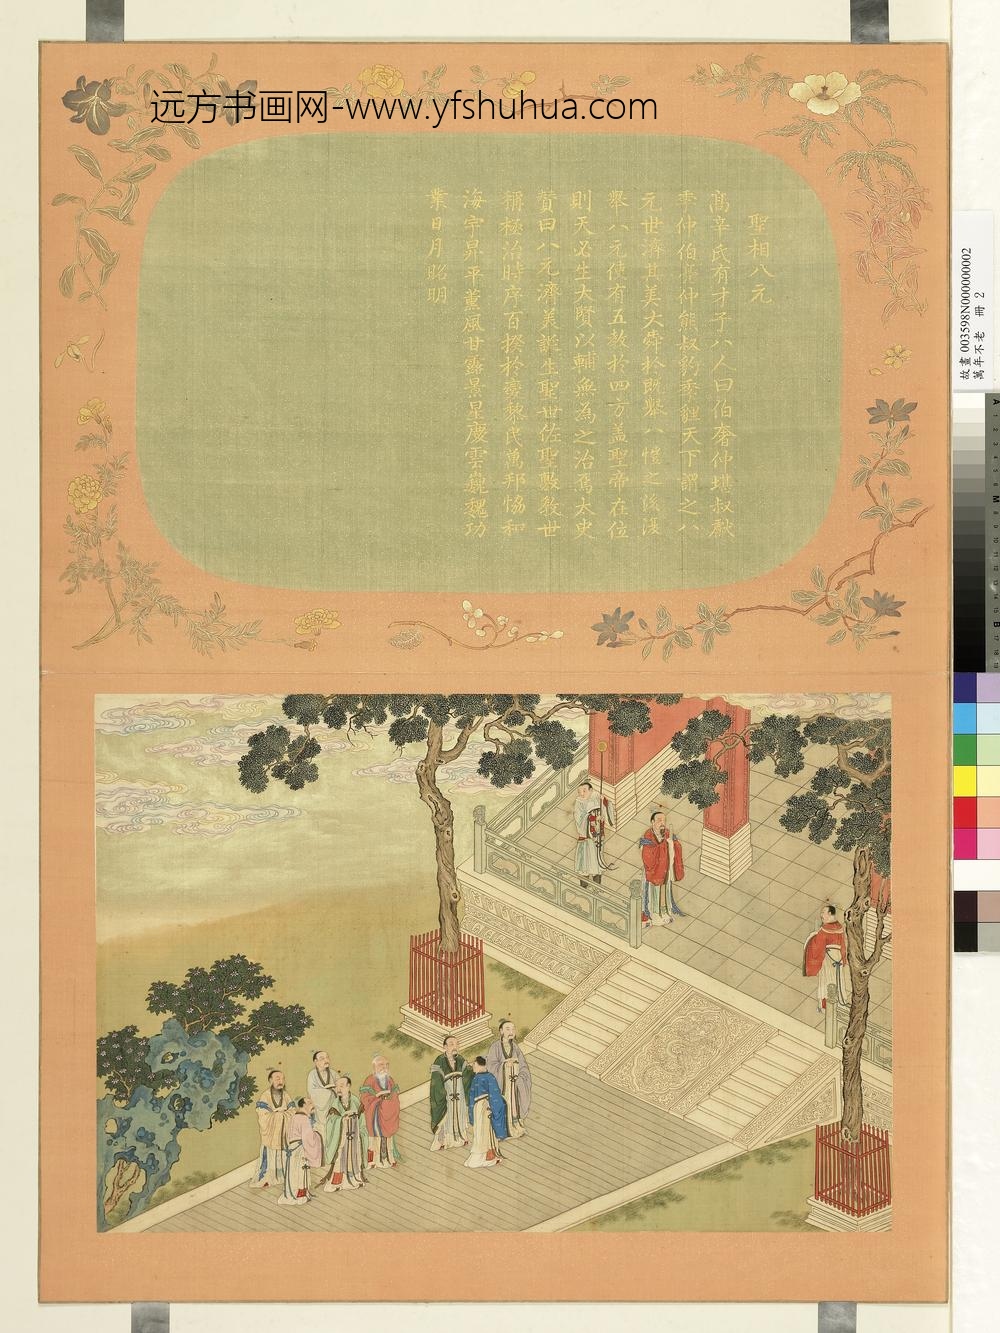 远方书画网-www.yfshuhua.com
聖相八元
髙辛氏有才子八人曰伯奮仲堪叔獻
季仲伯虎仲熊叔豹季貍天下謂之八
元世濟其美大舜於既舉八愷之後復
舉八元使布五教於四方盖聖帝在位
則天必生大賢以輔無為之治焉太史
贊曰八元濟美誕生聖世佐聖敷教世
稱極治時序百揆於變黎民萬邦恊和
海宇昇平薰風甘露景星慶雲巍巍功
業日月昭明
故畫 003598N000000002
萬年不老 冊 2
A
M
B